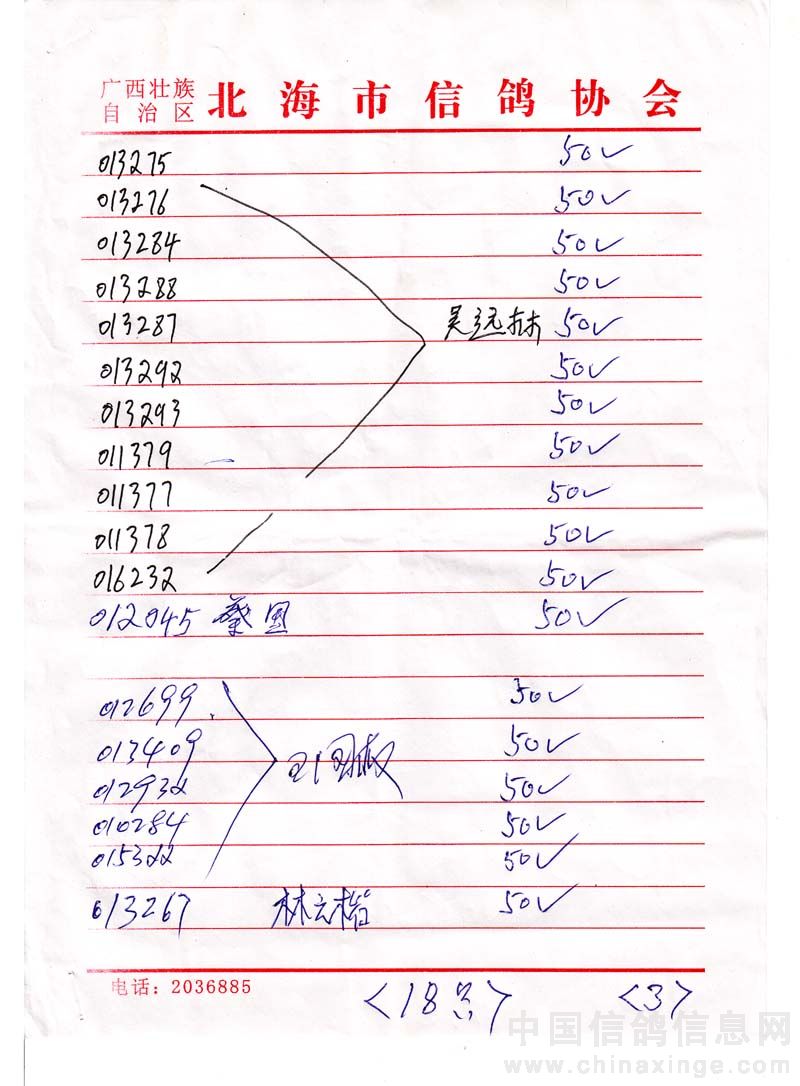 广西壮族
自治区 北海市信鸽协会
013275 50✓
013276 50✓
013284 50✓
013288 50✓
013287 吴远林 50✓
013292 50✓
013293 50✓
011379 50✓
011377 50✓
011378 50✓
016232 50✓
012045 蔡国 50✓
012699 50✓
013409 50✓
012932 50✓
010284 50✓
015322 50✓
013267 50✓
电话：2036885 <18只> <3>
中国信鸽信息网
www.chinaxinge.com